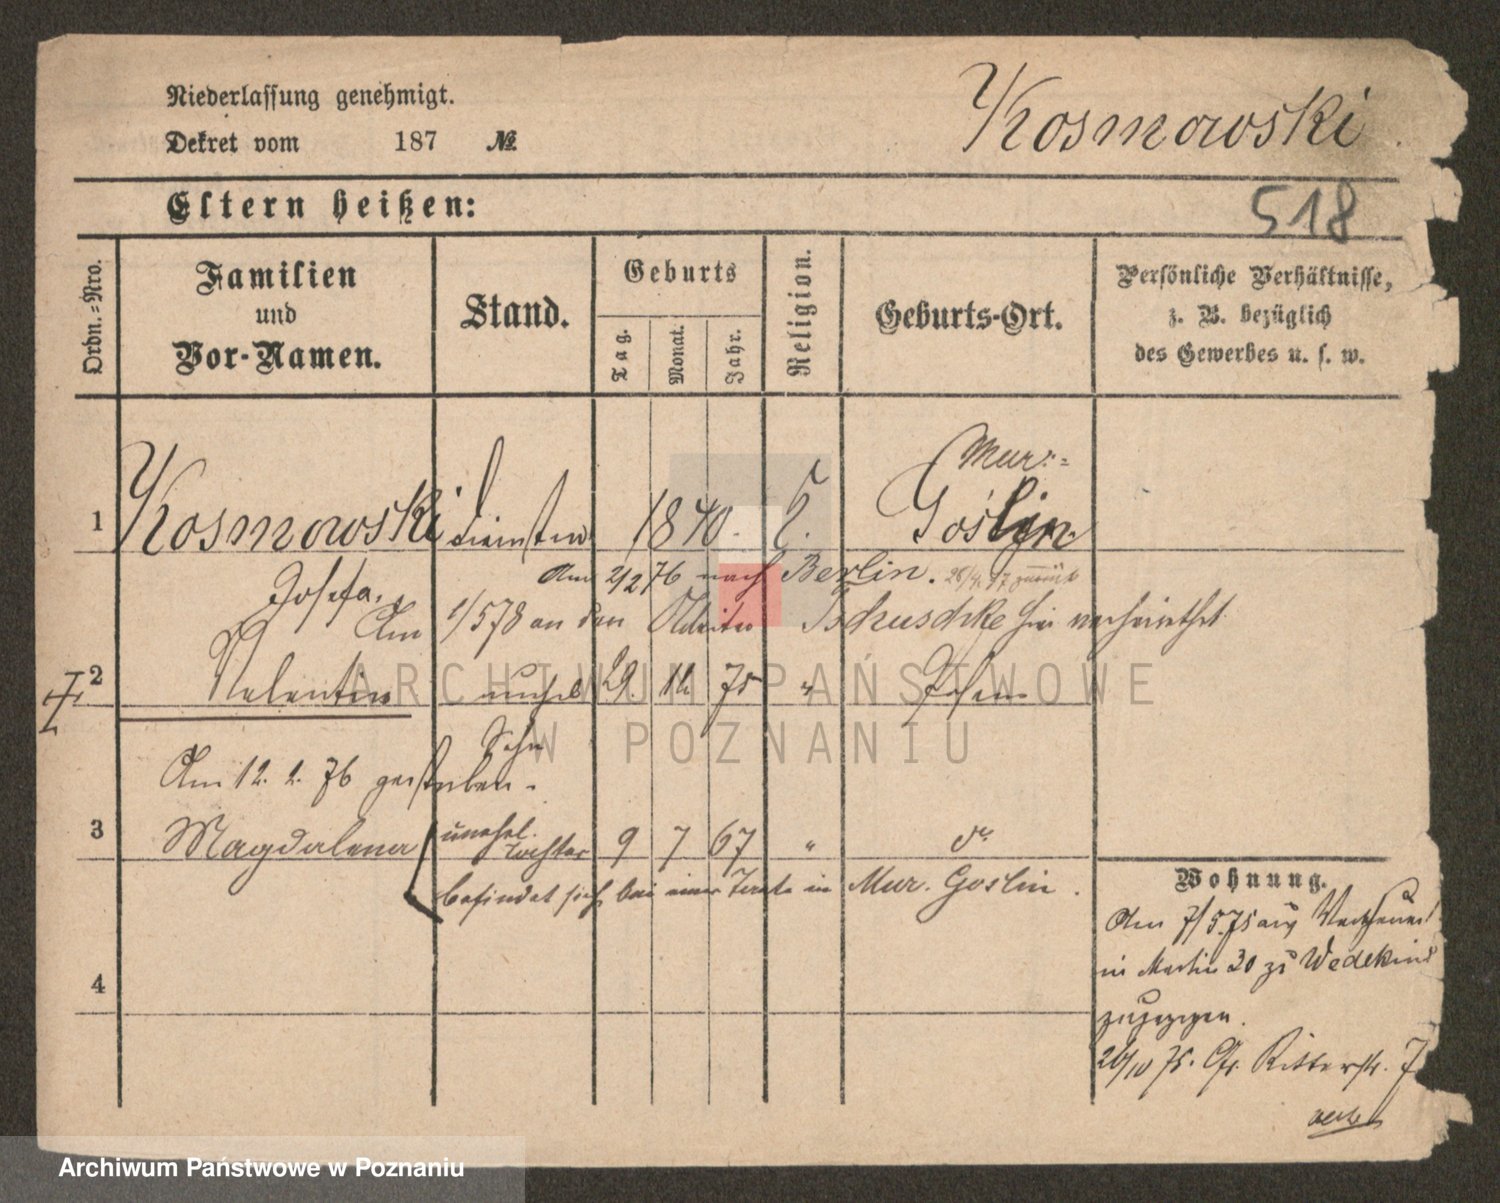 Niederlassung genehmigt.
Dekret vom 187 №
Kosmowski
Eltern heißen:
518
Ordn.-Nro.
Familien
und
Vor-Namen.
Stand.
Geburts
Tag.
Monat.
Jahr.
Religion.
Geburts-Ort.
Persönliche Verhältnisse,
z. B. bezüglich
des Gewerbes u. s. w.
Mur:=
1 Kosmowski 1840. Goslin
Josefa. Am 2/2 76 nach Berlin.
Am 1/5 78 an den Tschuschke hier verheirathet
2 Valentin unehel 29. 75 " Posen
Sohn
Am 12. 2. 76 gestorben.
3 Magdalena unehel. Tochter 9 7 67 " do
befindet sich bei einer Tante in Mur. Goslin.
4
Wohnung.
Am 7/5. 75 aus
in Martin 30 zu Wedekind
zugezogen.
26/10 75. Gr. Ritterstr. 7
ARCHIWUM PAŃSTWOWE
W POZNANIU
Archiwum Państwowe w Poznaniu